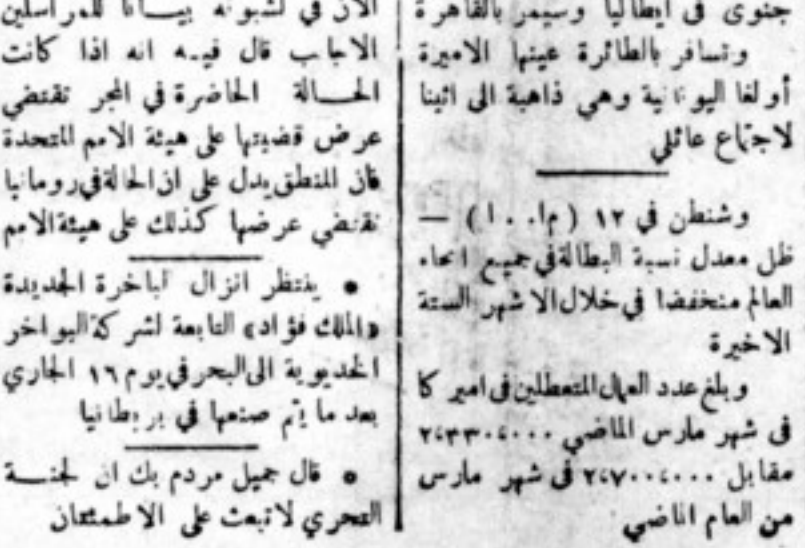 جنوى فى ايطاليا وسيمر بالقاهرة
وتسافر بالطائرة عينها الاميرة
أولغا اليونانية وهي ذاهبة الى اثينا
لاجتماع عائلي
وشنطن في ١٢ ( م.ا.٠ا ) —
ظل معدل نسبة البطالة في جميع انحاء
العالم منخفضا في خلال الاشهر الستة
الاخيرة
وبلغ عدد العمال المتعطلين فى اميركا
فى شهر مارس الماضي ٢،٣٣٠،٠٠٠
مقابل ٢،٧٠٠،٠٠٠ فى شهر مارس
من العام الماضي
الآن في لشبونه بيـانا للمراسلين
الاجانب قال فيـه انه اذا كانت
الحـالة الحاضرة في المجر تقتضي
عرض قضيتها على هيئة الامم المتحدة
فان المنطق يدل على ان الحالة في رومانيا
تقتضي عرضها كذلك على هيئة الامم
• ينتظر انزال الباخرة الجديدة
«الملك فؤاد» التابعة لشركة البواخر
الخديوية الى البحر في يوم ١٦ الجاري
بعد ما يتم صنعها في بريطانيا
• قال جميل مردم بك ان لجنـة
التحري لا تبعث على الاطمئنان